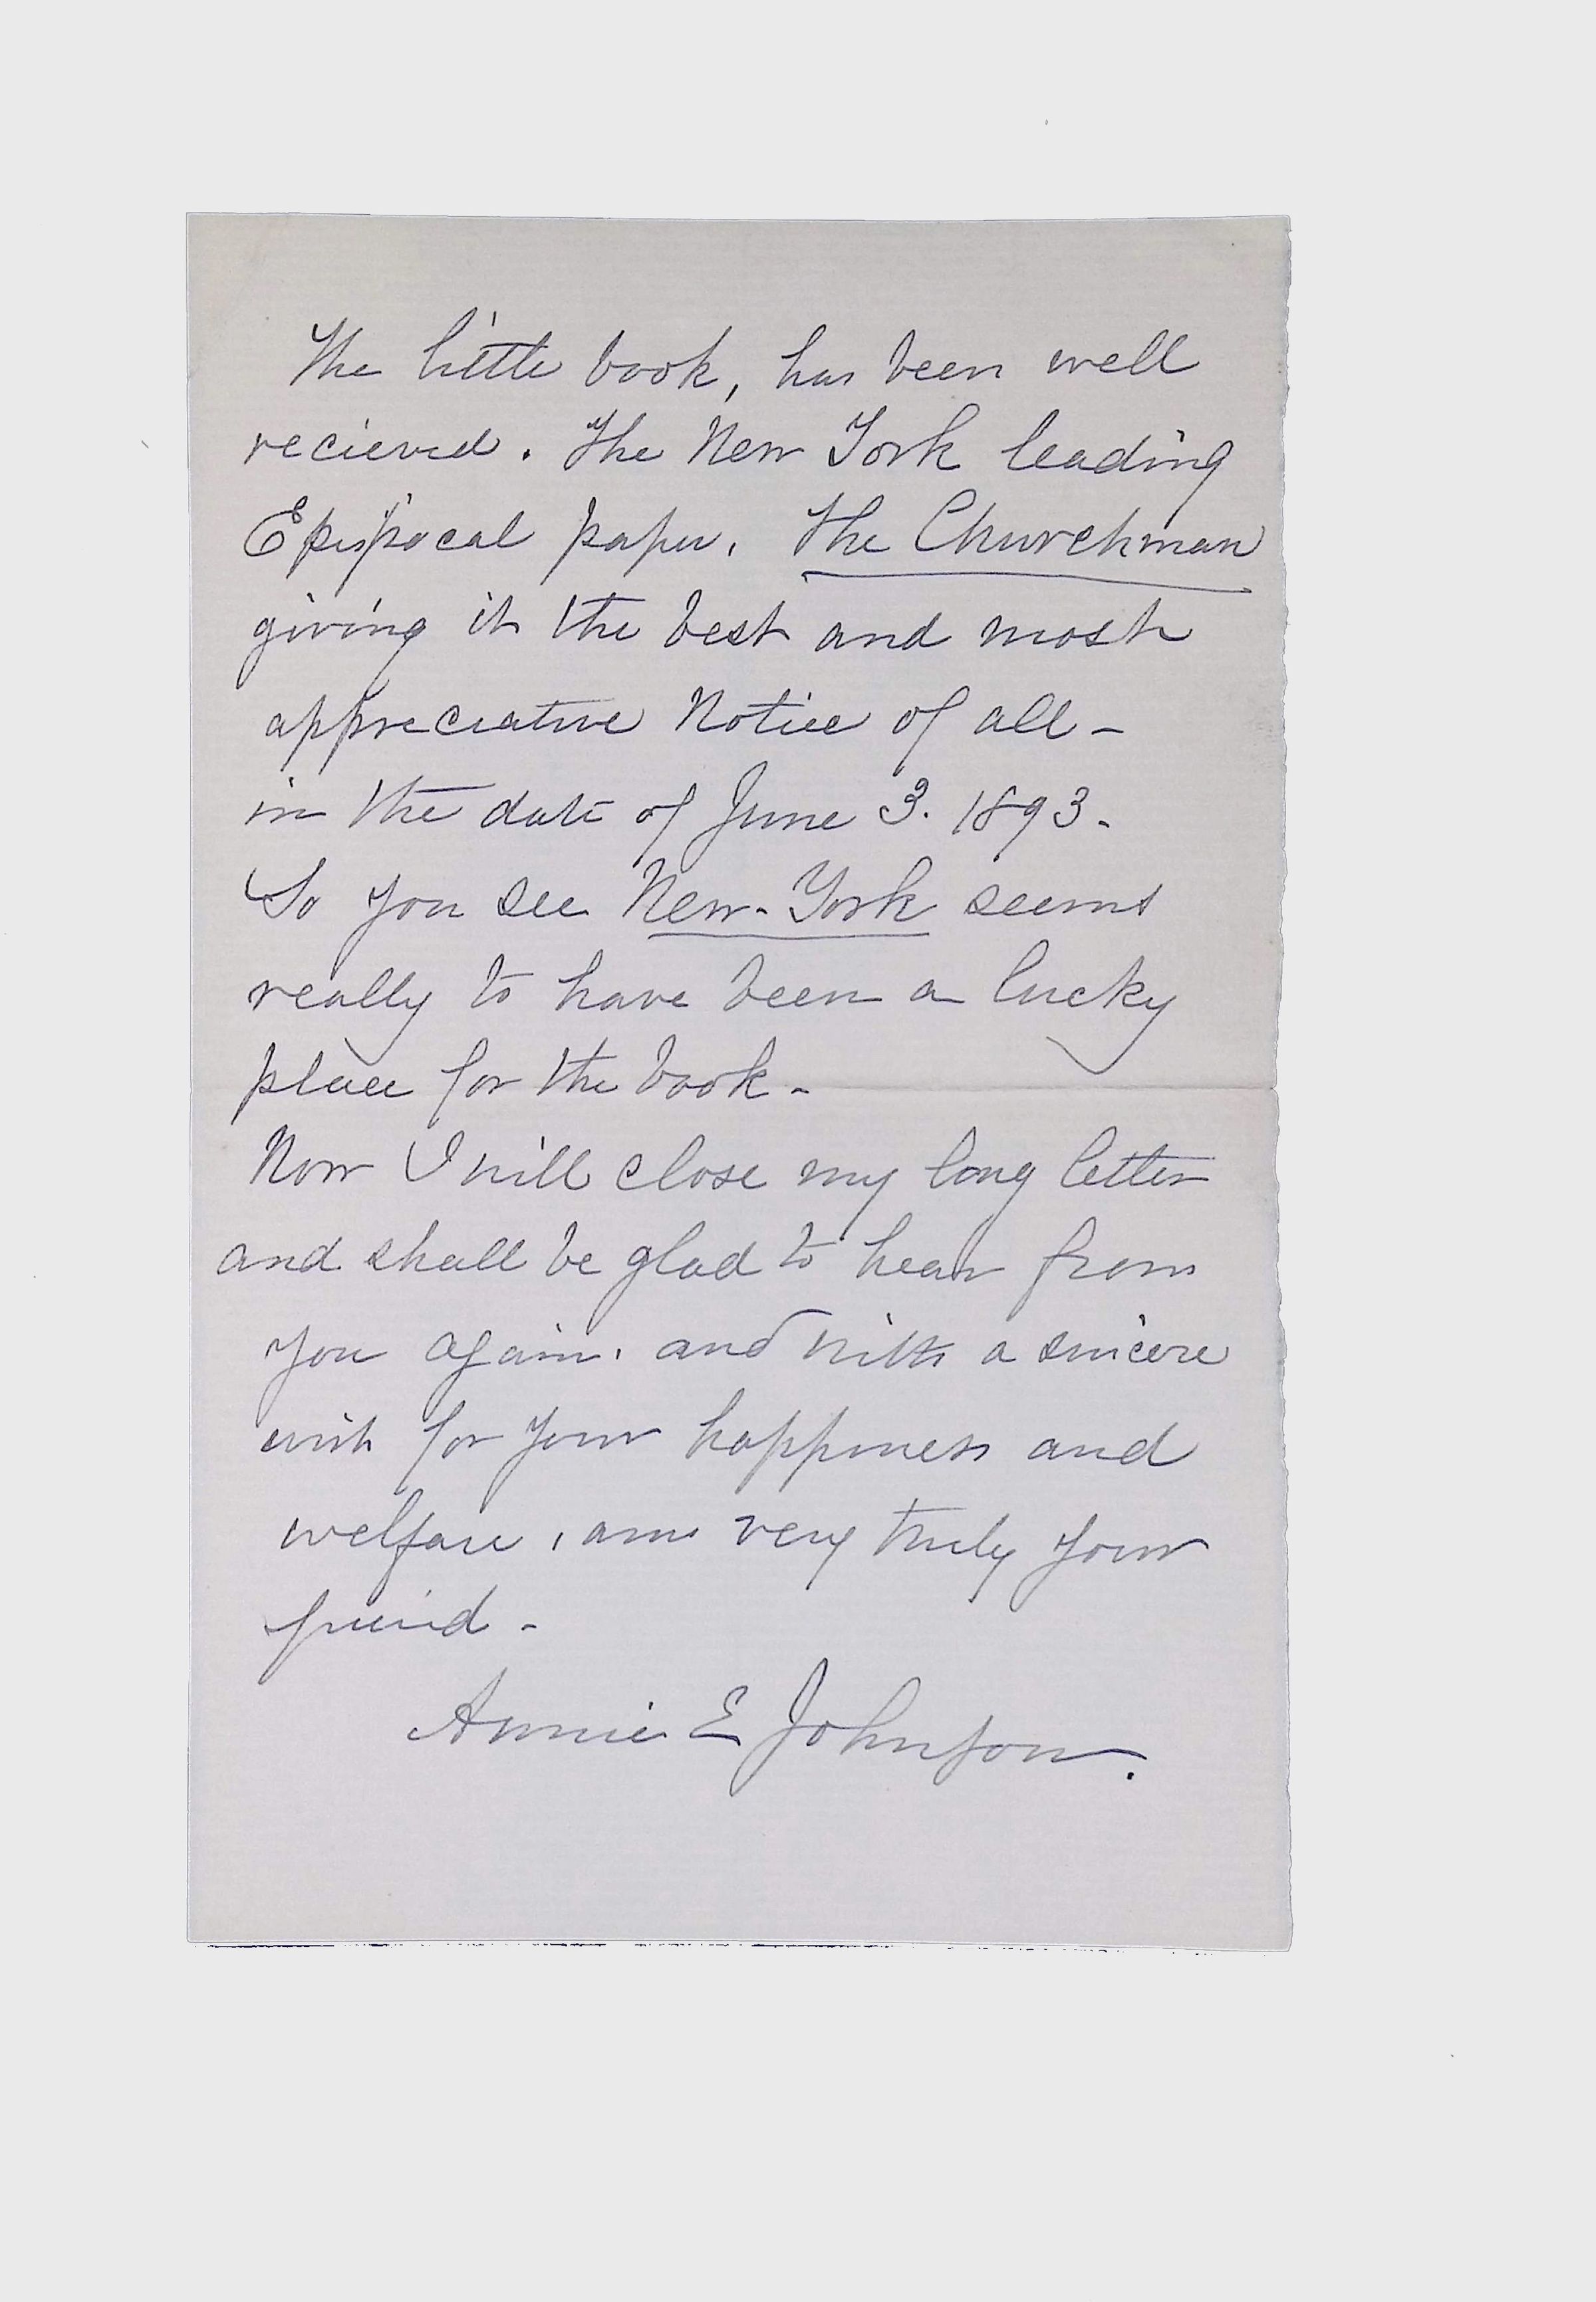 The little book, has been well
recieved. The New York leading
Epispocal paper. The Churchman
giving it the best and most
appreciative Notice of all -
in the date of June 3. 1893.
So you see New-York seems
really to have been a lucky
place for the book -
Now I will close my long letter
and shall be glad to hear from
you again. and with a sincere
wish for your happiness and
welfare, am very truly your
freind -
Annie E Johnson.